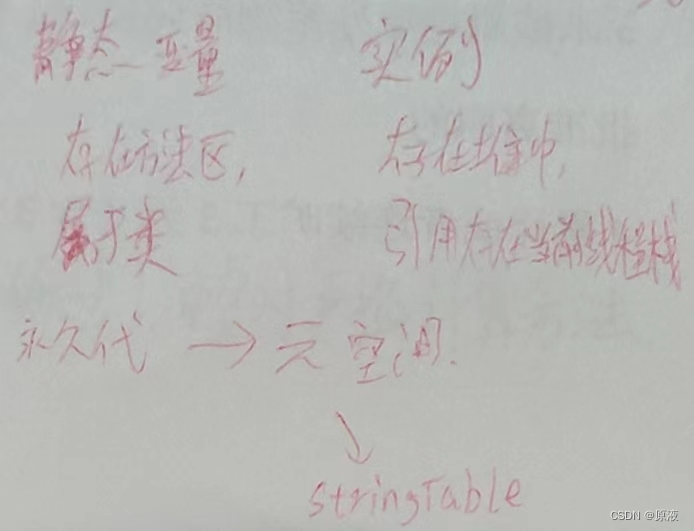 静态变量 实例
存在方法区, 存在堆中,
属于类 引用存在当前线程栈
永久代 → 元空间.
↓
stringTable
CSDN @原液